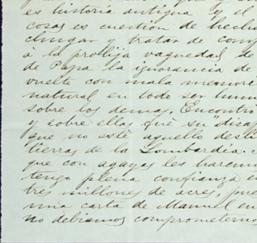 es historia antigua, y
cosas es cuestion de hecho
chingar y tratar de com
á la prolija vaguedad de
de Pepa la ignorancia de
vuelto con mala memoria
natural en todo ser
sobre los demas. Encontr
y sobre ellas fué su
que no esté aquello de
tierras de la Lombardia
que con agayas les haremos
tengo plena confianza en
tres millones de acres, pue
una carta de Manuel en
no debiamos comprometerno